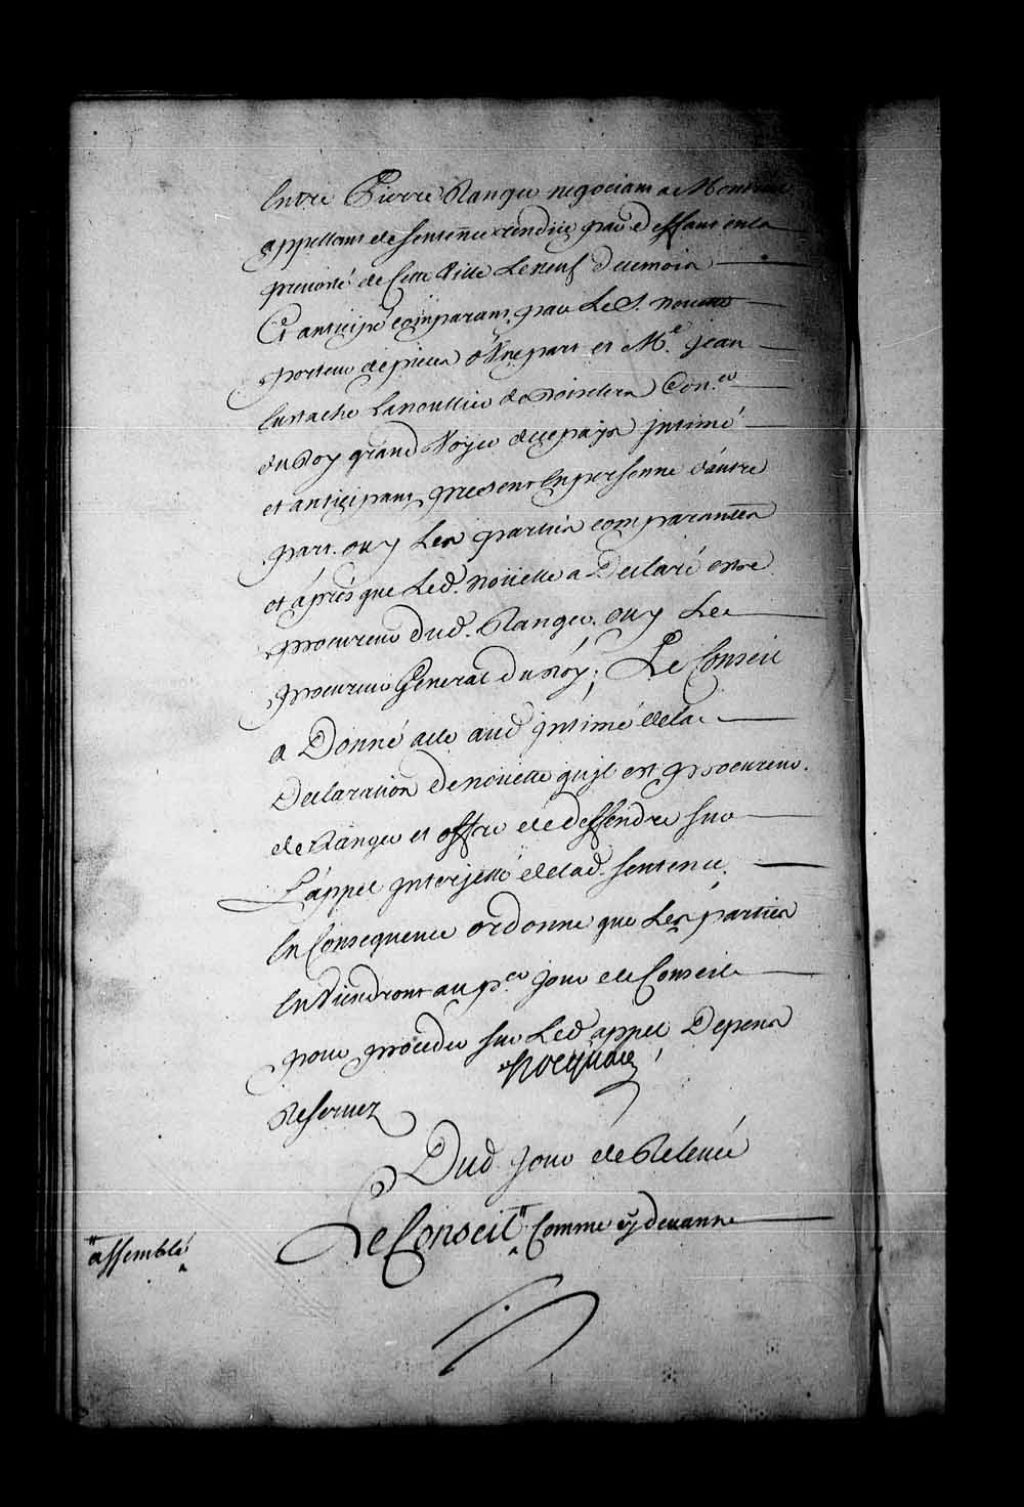 Entre Pierre Ranger negociant a Montreal
appellant de sentence rendüe par deffaut en la
prevosté de Cette Ville Le neuf de ce mois
Et anticipé comparant par Le S. nouette
porteur de pieces d'Une part et M.e jean
Eustache Lanoullier de Boisclerc Con.er
du Roy grand Voyer de ce pays jntimé
et anticipant present En personne d'autre
part. ouy Les parties comparantes
et áprés que Led. Noüette a Declaré estre
procureur dud. Ranger. ouy Le
procureur General du Roy; Le Conseil
a Donné acte aud jntimé de la
Declaration de noüette qu'jl est procureur.
de Ranger et offre de deffendre sur
L'áppel jnterjetté de lad. sentence.
En Consequence ordonne que Les parties
En Viendront au p.er jour de Conseil
pour proceder sur Led appel Depens
Reservez
Hocquart
Dud. jour de Relevé
Le Conseil " Comme cy devant
"assemblé